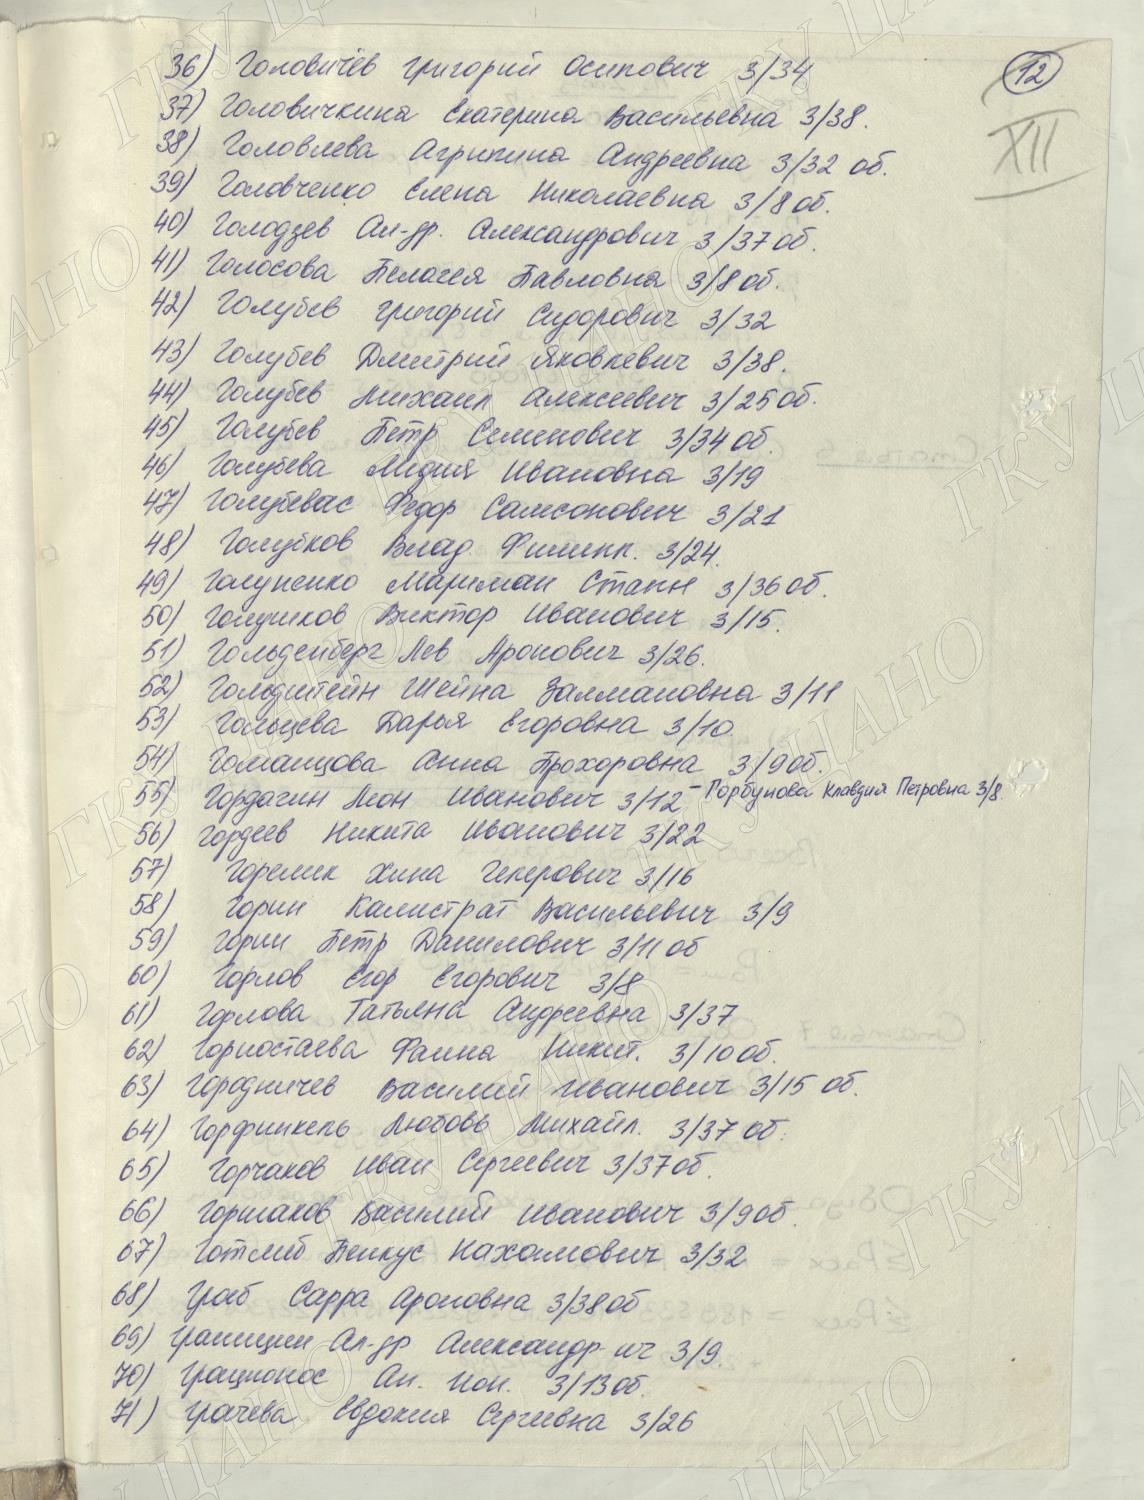 12
XII
36) Головичёв Григорий Осипович 3/34
37) Головичкина Екатерина Васильевна 3/38.
38) Головлева Агрипина Андреевна 3/32 об.
39) Головченко Елена Николаевна 3/8 об.
40) Голодзев Ал-др. Александрович 3/37 об.
41) Голосова Пелагея Павловна 3/8 об.
42) Голубев Григорий Сидорович 3/32
43) Голубев Дмитрий Яковлевич 3/38.
44) Голубев Михаил Алексеевич 3/25 об.
45) Голубев Петр Семенович 3/34 об.
46) Голубева Лидия Ивановна 3/19
47) Голубевас Федор Самсонович 3/21
48) Голубков Влад. Филипп. 3/24.
49) Голуненко Мариман Стани 3/36 об.
50) Голушков Виктор Иванович 3/15.
51) Гольденберг Лев Аронович 3/26.
52) Гольдштейн Шейна Залмановна 3/11
53) Гольцева Дарья Егоровна 3/10.
54) Гоманцова Анна Прохоровна 3/9 об.
55) Гордагин Леон Иванович 3/12 – Горбунова Клавдия Петровна 3/8.
56) Гордеев Никита Иванович 3/22
57) Горелик Хина Гецерович 3/16
58) Горин Калистрат Васильевич 3/9
59) Горин Петр Данилович 3/11 об
60) Горлов Егор Егорович 3/8
61) Горлова Татьяна Андреевна 3/37
62) Горностаева Фаина Никит. 3/10 об.
63) Городничев Василий Иванович 3/15 об.
64) Горфинкель Любовь Михайл. 3/37 об.
65) Горчаков Иван Сергеевич 3/37 об.
66) Горшаков Василий Иванович 3/9 об.
67) Готлиб Пейкус Нахамович 3/32
68) Граб Сарра Ароновна 3/38 об
69) Границин Ал-др Александр-ич 3/9.
70) Грационос Ан. Ион. 3/13 об.
71) Грачева Евдокия Сергеевна 3/26
ГКУ ЦАНО